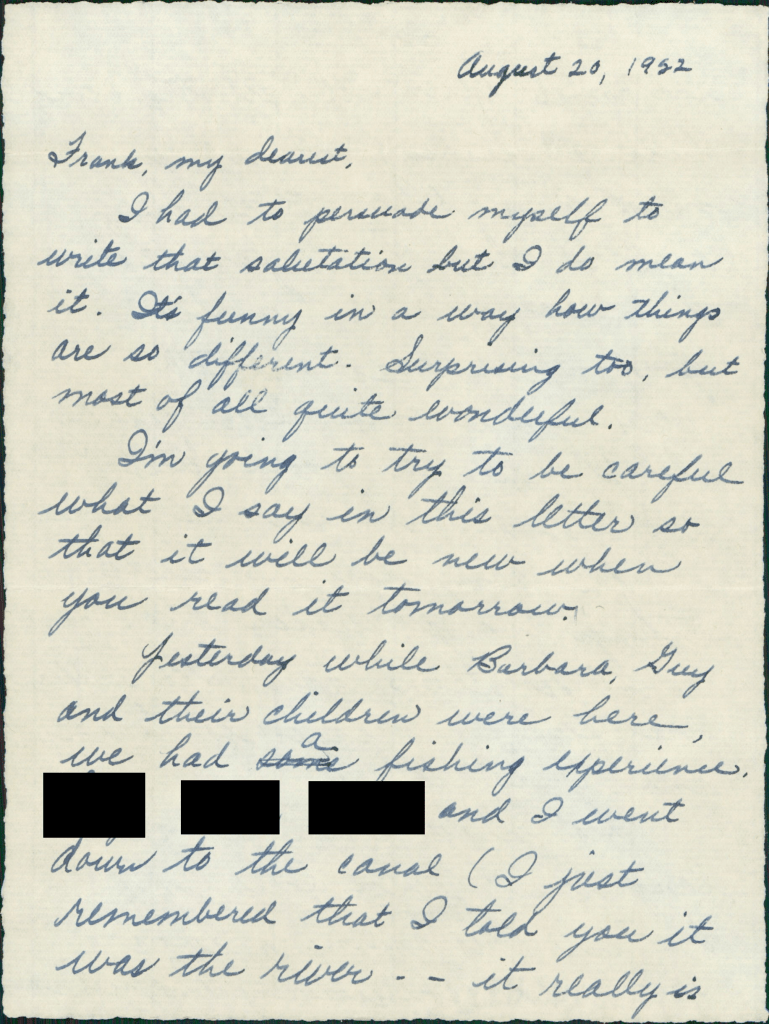 August 20, 1952
Frank, my dearest,
I had to persuade myself to
write that salutation but I do mean
it. It's funny in a way how things
are so different. Surprising too, but
most of all quite wonderful.
I'm going to try to be careful
what I say in this letter so
that it will be new when
you read it tomorrow.
Yesterday while Barbara, Guy
and their children were here,
we had some a fishing experience.
and I went
down to the canal (I just
remembered that I told you it
was the river - - it really is